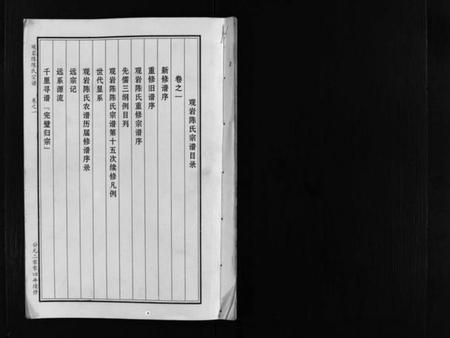 观岩陈氏宗谱目录
卷之一
新修谱序
重修旧谱序
观岩陈氏重修宗谱序
先儒三纲例目列
观岩陈氏宗谱第十五次续修凡例
世代显系
观岩陈氏农谱历届修谱序录
远宗记
远系源流
千里寻谱「完璧归宗」
观岩陈陈氏宗谱 卷之一
公元二零零四年续修